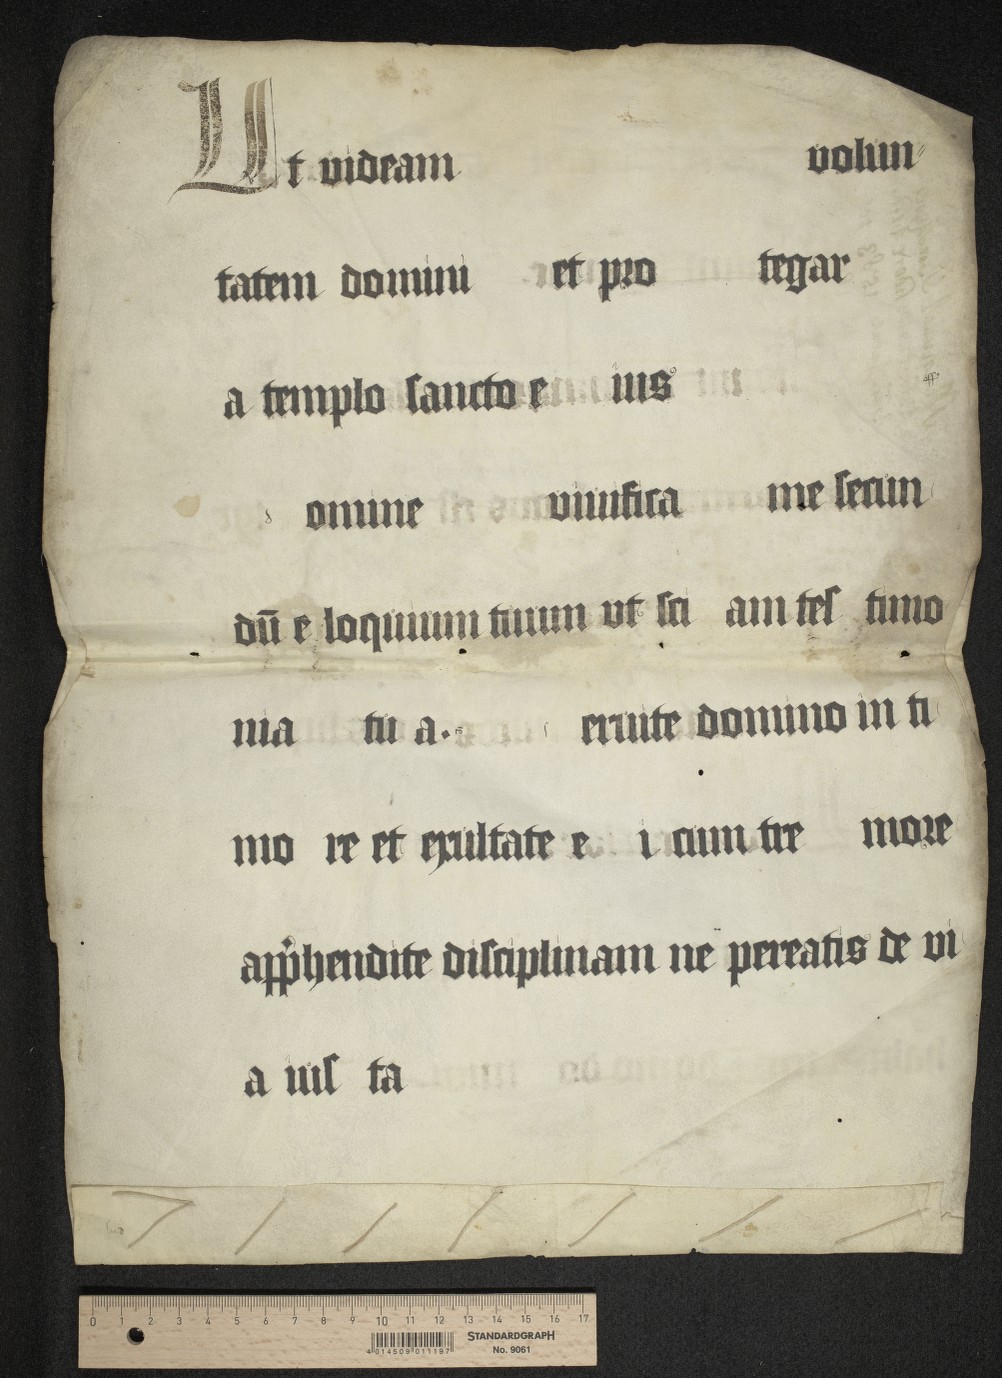 Ut videam volun
tatem domini et pro tegar
a templo sancto e ius
omine vivifica me secun
dū e loquium tuum ut sci am tes timo
nia tu a. ervite domino in ti
mo re et exultate e i cum tre more
apphendite disciplinam ne pereatis de vi
a ius ta
0 1 2 3 4 5 6 7 8 9 10 11 12 13 14 15 16 17
4 014509 011197
STANDARDGRAPH
No. 9061